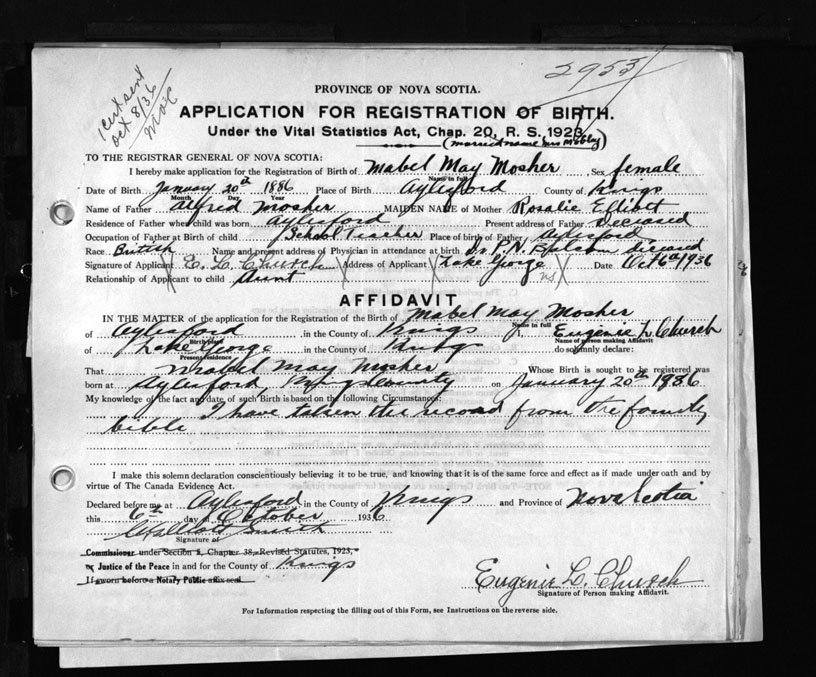 2953
1 cert sent
Oct 8/36
PROVINCE OF NOVA SCOTIA.
APPLICATION FOR REGISTRATION OF BIRTH.
Under the Vital Statistics Act, Chap. 20, R. S. 1923.
(married name Mrs Mobley)
TO THE REGISTRAR GENERAL OF NOVA SCOTIA:
I hereby make application for Registration of Birth of Mabel May Mosher Sex female
Name in full
Date of Birth January 20th 1886 Place of Birth Aylesford County of Kings
Month Day Year
Name of Father Alfred Mosher MAIDEN NAME of Mother Rosalie Elliott
Residence of Father when child was born Aylesford Present address of Father Deceased
Occupation of Father at Birth of child School Teacher Place of birth of Father Aylesford
Race British Name and present address of Physician in attendance at birth Dr.
Signature of Applicant E. L. Church Address of Applicant Lake George NS Date Oct 6th 1936
Relationship of Applicant to child Aunt
AFFIDAVIT
IN THE MATTER of the application for the Registration of the Birth of Mabel May Mosher
Name in full
of Aylesford in the County of Kings I, Eugenie L. Church
Birth place Name of person making Affidavit
of Lake George in the County of Kings do solemnly declare:
Present residence
That Mabel May Mosher Whose Birth is sought to be registered was
born at Aylesford, Kings County on January 20th 1886
My knowledge of the fact and date of such Birth is based on the following Circumstances:
I have taken the record from the family
bible
I make this solemn declaration conscientiously believing it to be true, and knowing that it is of the same force and effect as if made under oath and by
virtue of The Canada Evidence Act.
Declared before me at Aylesford in the County of Kings and Province of Nova Scotia
this 6th day of October 1936
Smith
Signature of
Commissioner under Section 3, Chapter 38, Revised Statutes, 1923,
or Justice of the Peace in and for the County of Kings
If sworn before a Notary Public affix seal.
Eugenie L. Church
Signature of Person making Affidavit.
For Information respecting the filling out of this Form, see Instructions on the reverse side.